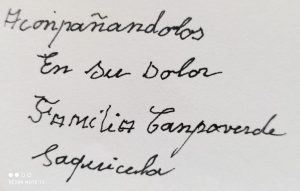 Aconpañandolos
En su Dolor
Familia Canpoverde
Saquicela